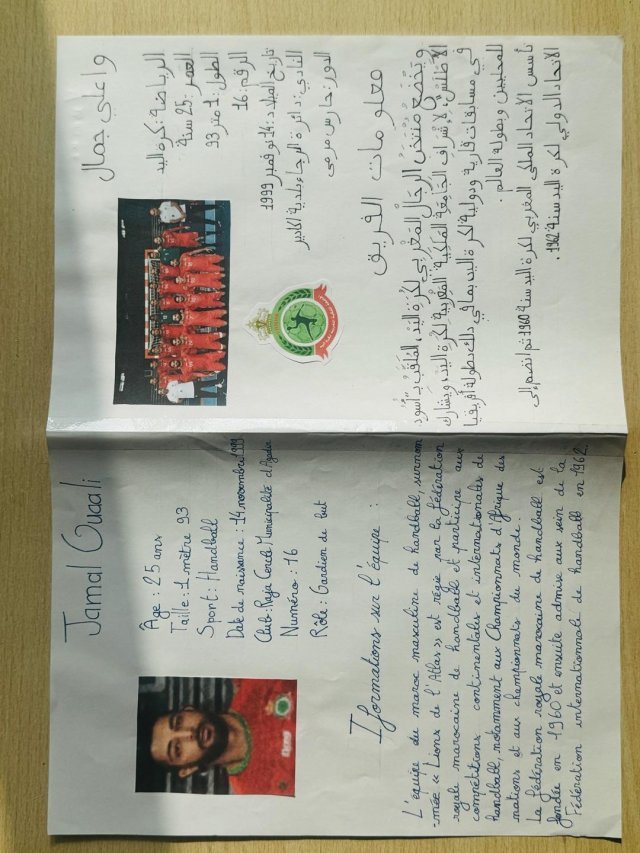 Jamal Ouaali
Âge : 25 ans
Taille : 1 mètre 93
Sport : Handball
Date de naissance : 14 novembre 1999
Club : Raja Cercle Municipalité d'Agadir
Numméro : 16
Rôle : Gardien de but
Iformations sur l'équipe :
L'équipe du maroc masculine de handball surnom
-mée « Lions de l'Atlas » est régie par la fédération
royale marocaine de handball et participe aux
compétitions continentales et internationales de
handball, notamment aux Championnats d'Afrique des
nations et aux championnats du monde.
La fédération royale marocaine de handball est
fondée en 1960 et ensuite admise aux sein de la
Fédération internationnale de handball en 1962.
واعلي جمال
الرياضة : كرة اليد
العمر : 25 سنة
الطول : 1 متر 93
الرقم : 16
تاريخ الميلاد : 14 نوفمبر 1999
النادي : دائرة الرجاء بلدية اكادير
الدور : حارس مرمى
معلومات الفريق
ويَخْضَع مُنْتَخَبُ الرِجَالِ المَغْرِبِي لِكُرَةِ اليَدِ، المُلَقَّبُ بـ "أُسُود
الأطْلَس"، لِإشْرَافِ الجَامِعَةِ المَلَكِيَّةِ المَغْرِبِيَةِ لِكُرَةِ اليَدِ، وَيُشَارِك
في مسابقات قارية ودولية لكرة اليد، بما في ذلك بطولة أفريقيا
للمحليين وبطولة العالم.
تأسس الاتحاد الملكي المغربي لكرة اليد سنة 1960 ثم انضم إلى
الاتحاد الدولي لكرة اليد سنة 1962.